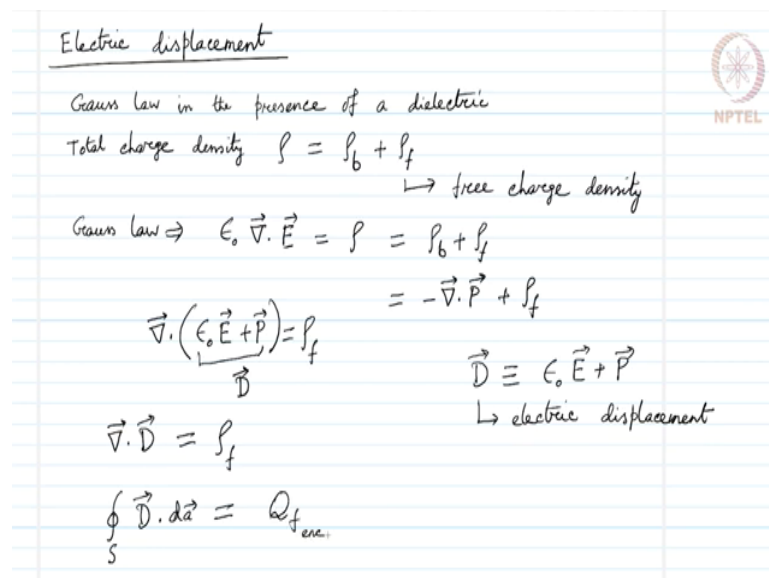 Electric displacement
NPTEL
Gauss law in the presence of a dielectric
Total charge density ρ = ρ_b + ρ_f
↳ free charge density
Gauss law ⇒ ϵ₀ ∇⃗. E⃗ = ρ = ρ_b + ρ_f
= -∇⃗. P⃗ + ρ_f
∇⃗. (ϵ₀ E⃗ + P⃗) = ρ_f
D⃗
D⃗ ≡ ϵ₀ E⃗ + P⃗
↳ electric displacement
∇⃗. D⃗ = ρ_f
∮_S D⃗ . da⃗ = Q_f enc.